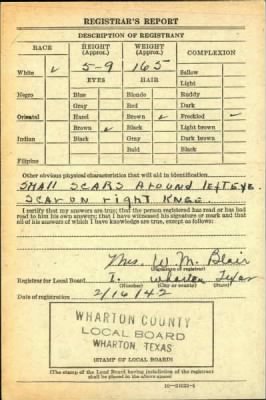 REGISTRAR'S REPORT
DESCRIPTION OF REGISTRANT
RACE HEIGHT (Approx.) WEIGHT (Approx.) COMPLEXION
White ✓ 5-9 165 Sallow
EYES HAIR Light
Negro Blue Blonde Ruddy
Gray Red Dark
Oriental Hazel Brown ✓ Freckled ✓
Brown ✓ Black Light brown
Indian Black Gray Dark brown
Bald Black
Filipino
Other obvious physical characteristics that will aid in identification
SMALL SCARS Around left Eye.
SCAR ON right KNEE
I certify that my answers are true; that the person registered has read or has had
read to him his own answers; that I have witnessed his signature or mark and that
all of his answers of which I have knowledge are true, except as follows:
Mrs. W. M. Blair
(Signature of registrar)
Registrar for Local Board 1. Wharton Texas
(Number) (City or county) (State)
Date of registration 2/16/42
WHARTON COUNTY
LOCAL BOARD
WHARTON, TEXAS
(STAMP OF LOCAL BOARD)
(The stamp of the Local Board having jurisdiction of the registrant
shall be placed in the above space)